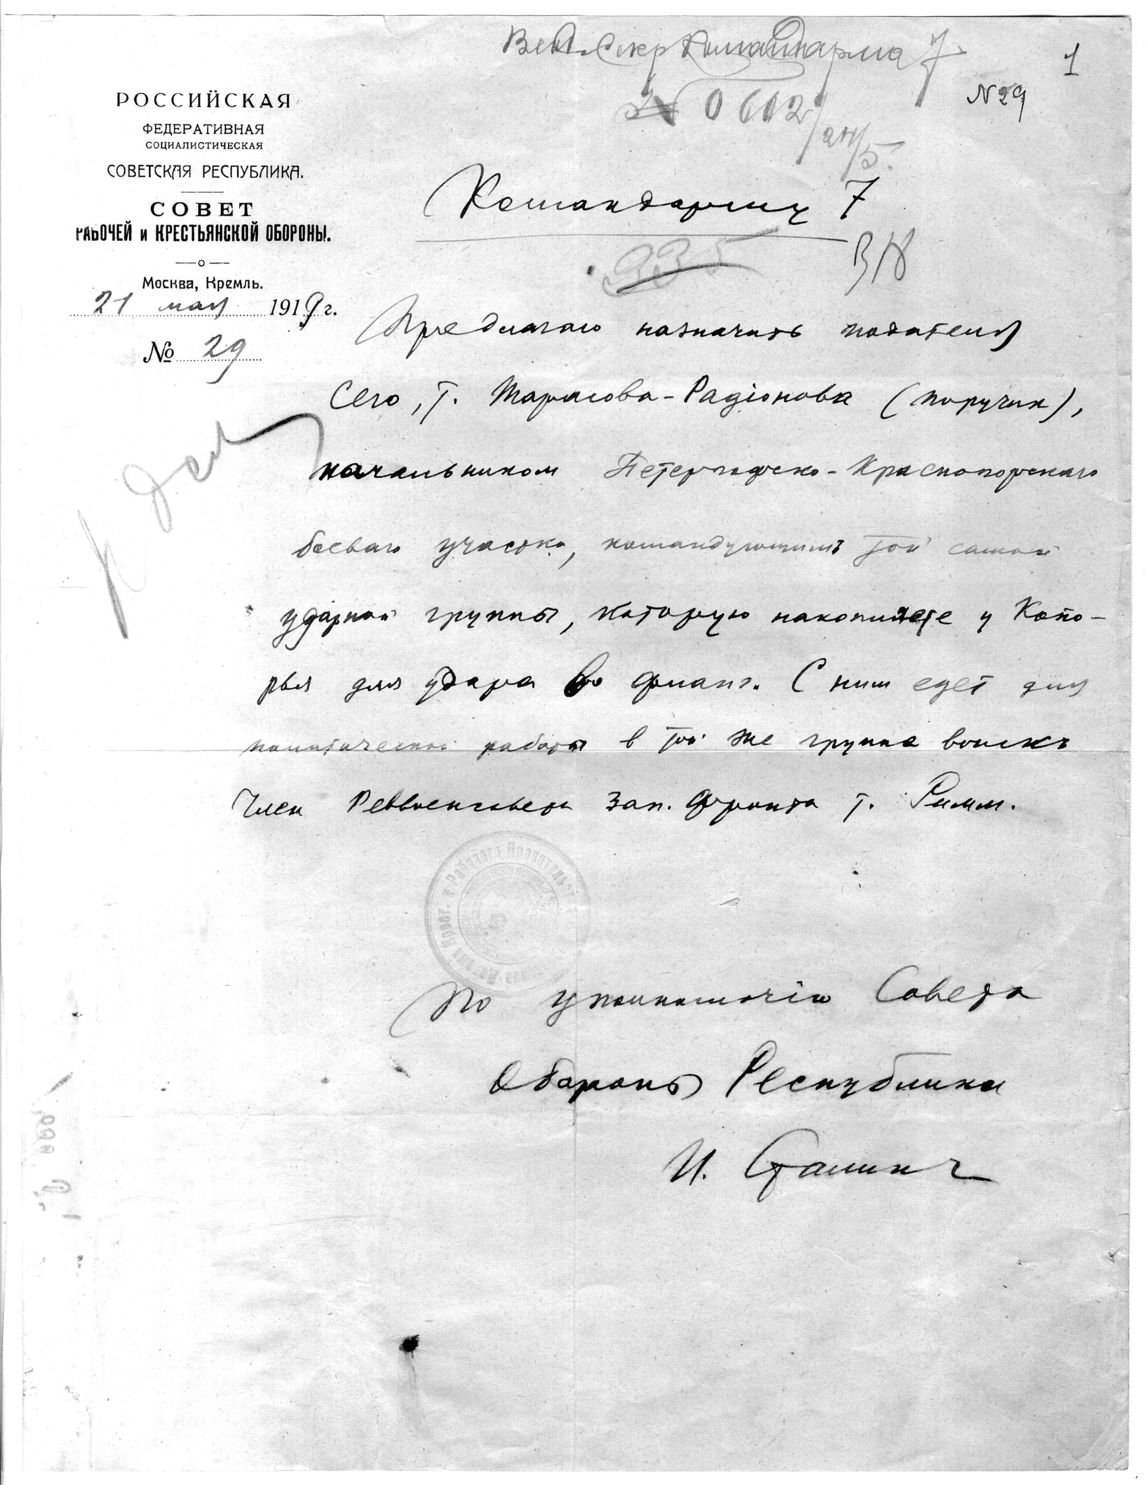 1
№ 29
№ 0602
24/5.
РОССИЙСКАЯ
ФЕДЕРАТИВНАЯ
СОЦИАЛИСТИЧЕСКАЯ
СОВЕТСКАЯ РЕСПУБЛИКА.
СОВЕТ
РАБОЧЕЙ и КРЕСТЬЯНСКОЙ ОБОРОНЫ.
Москва, Кремль.
21 мая 1919 г.
№ 29
К делу
Командарму 7
335
Предлагаю назначить подателя
сего, т. Тарасова-Радіонова (поручик),
начальником Петергофско-Красногорскаго
боеваго участка, командующимъ той самой
ударной группы, которую накопляете у Копо-
рья для удара во фланг. С ним едет для
политической работы в той же группе войскъ
Член Реввоенсовета Зап. фронта т. Римм.
По уполномочію Совета
Обороны Республики
И. Сталинъ